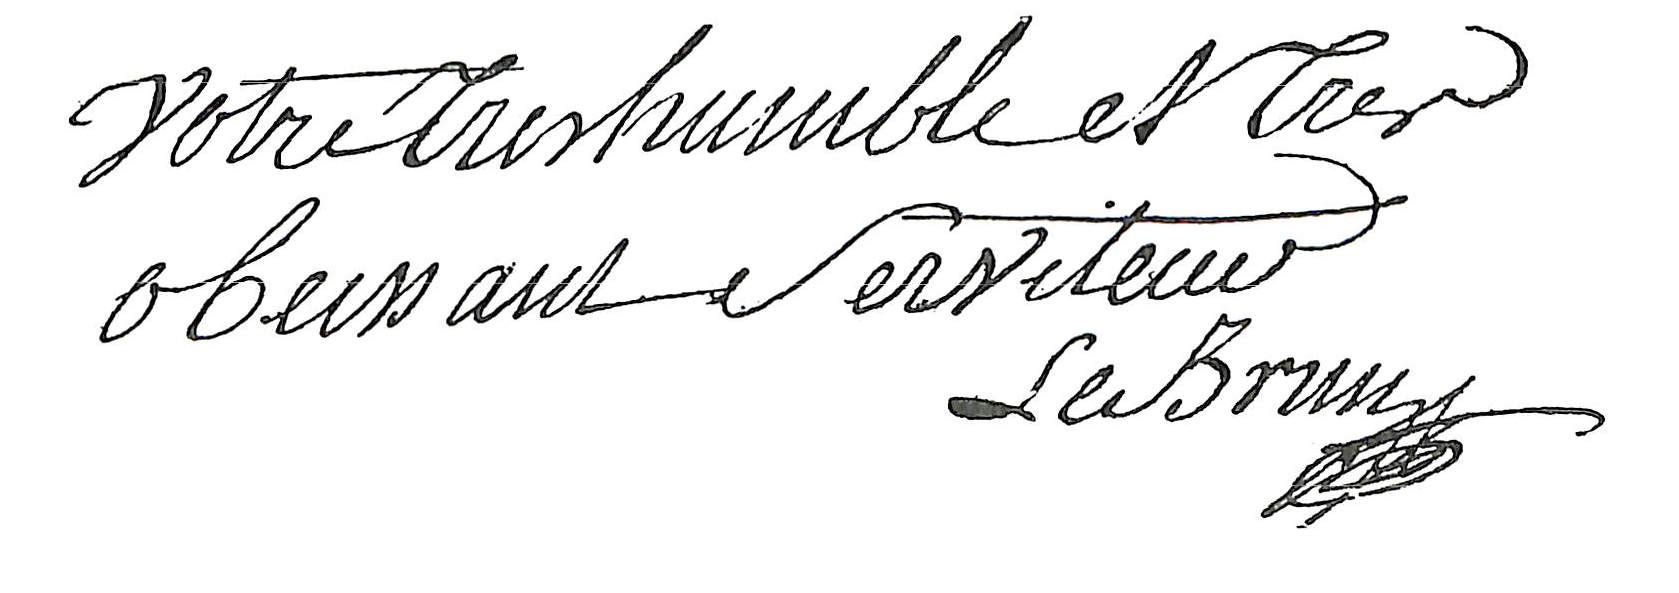 Votre Tres humble et Tres
obeissant e Serviteur
Le Brun